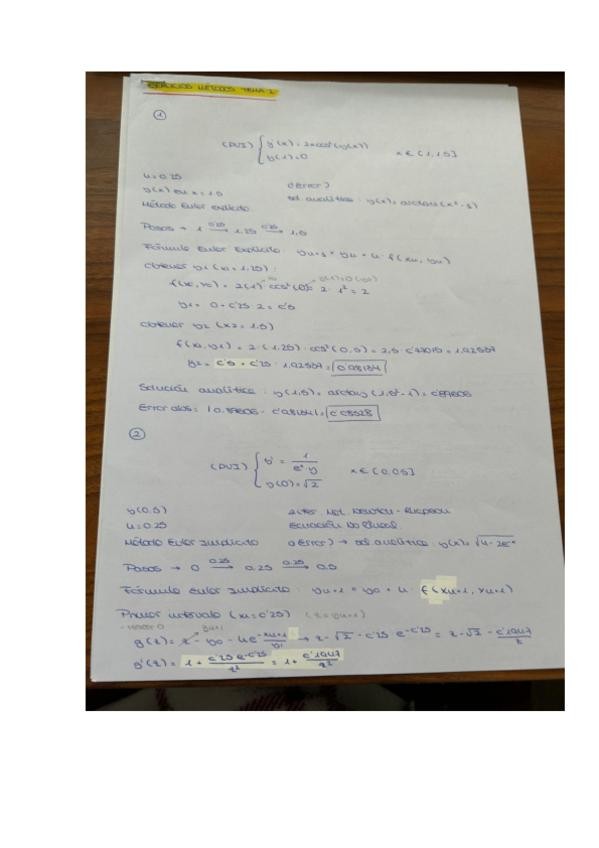 EJERCICIOS MÉTODOS TEMA 2
①
(PVI) { y'(x) = 2x cos²(y(x))
y(1)=0 x ∈ [1, 1,5]
h = 0.25
y(x) en x = 1.5 ¿Error?
Método Euler explícito sol. analítica: y(x) = arctan(x²-1)
Pasos → 1 0.25→ 1.25 0.25→ 1,5
Fórmula Euler Explícito: yn+1 = yn + h · f(xn, yn)
obtener y1 (x1 = 1,25):
f(x0, y0) = 2(1) · cos²(0) = 2 · 1² = 2
y1 = 0 + 0'25 · 2 = 0'5
obtener y2 (x2 = 1.5)
f(x1, y1) = 2 · (1,25) · cos²(0,5) = 2,5 · 0'77015 = 1.92537
y2 = 0'5 + 0'25 · 1.92537 = 0'98134
Solución analítica: y(1,5) = arctan(1,5²-1) = 0'89606
Error abs = |0.89606 - 0'98134| = 0'08528
②
(PVI) { y' = 1 / e^x·y x ∈ [0, 0.5]
y(0) = √2
y(0.5) 2 iter. Mét. Newton-Raphson
h = 0.25 Ecuación No lineal
Método Euler Implícito ¿Error? → sol. analítica: y(x) = √4-2e^-x
Pasos → 0 0.25→ 0.25 0.25→ 0.5
Fórmula Euler Implícito: yn+1 = yn + h · f(xn+1, yn+1)
Primer intervalo (x1 = 0'25) (z = yn+1)
g(z) = z - y0 - h e^-xn+1 / yn+1 → z - √2 - 0'25 e^-0'25 = z - √2 - 0'1947/z
g'(z) = 1 + 0'25 e^-0'25 / z² = 1 + 0'1947/z²